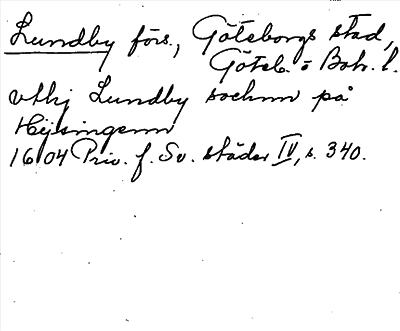 Lundby förs., Göteborgs stad,
Göteb. o Boh. l.
vthj Lundby sochnn på
Hijsingenn
1604 Priv. f. Sv. städer IV, s. 340.